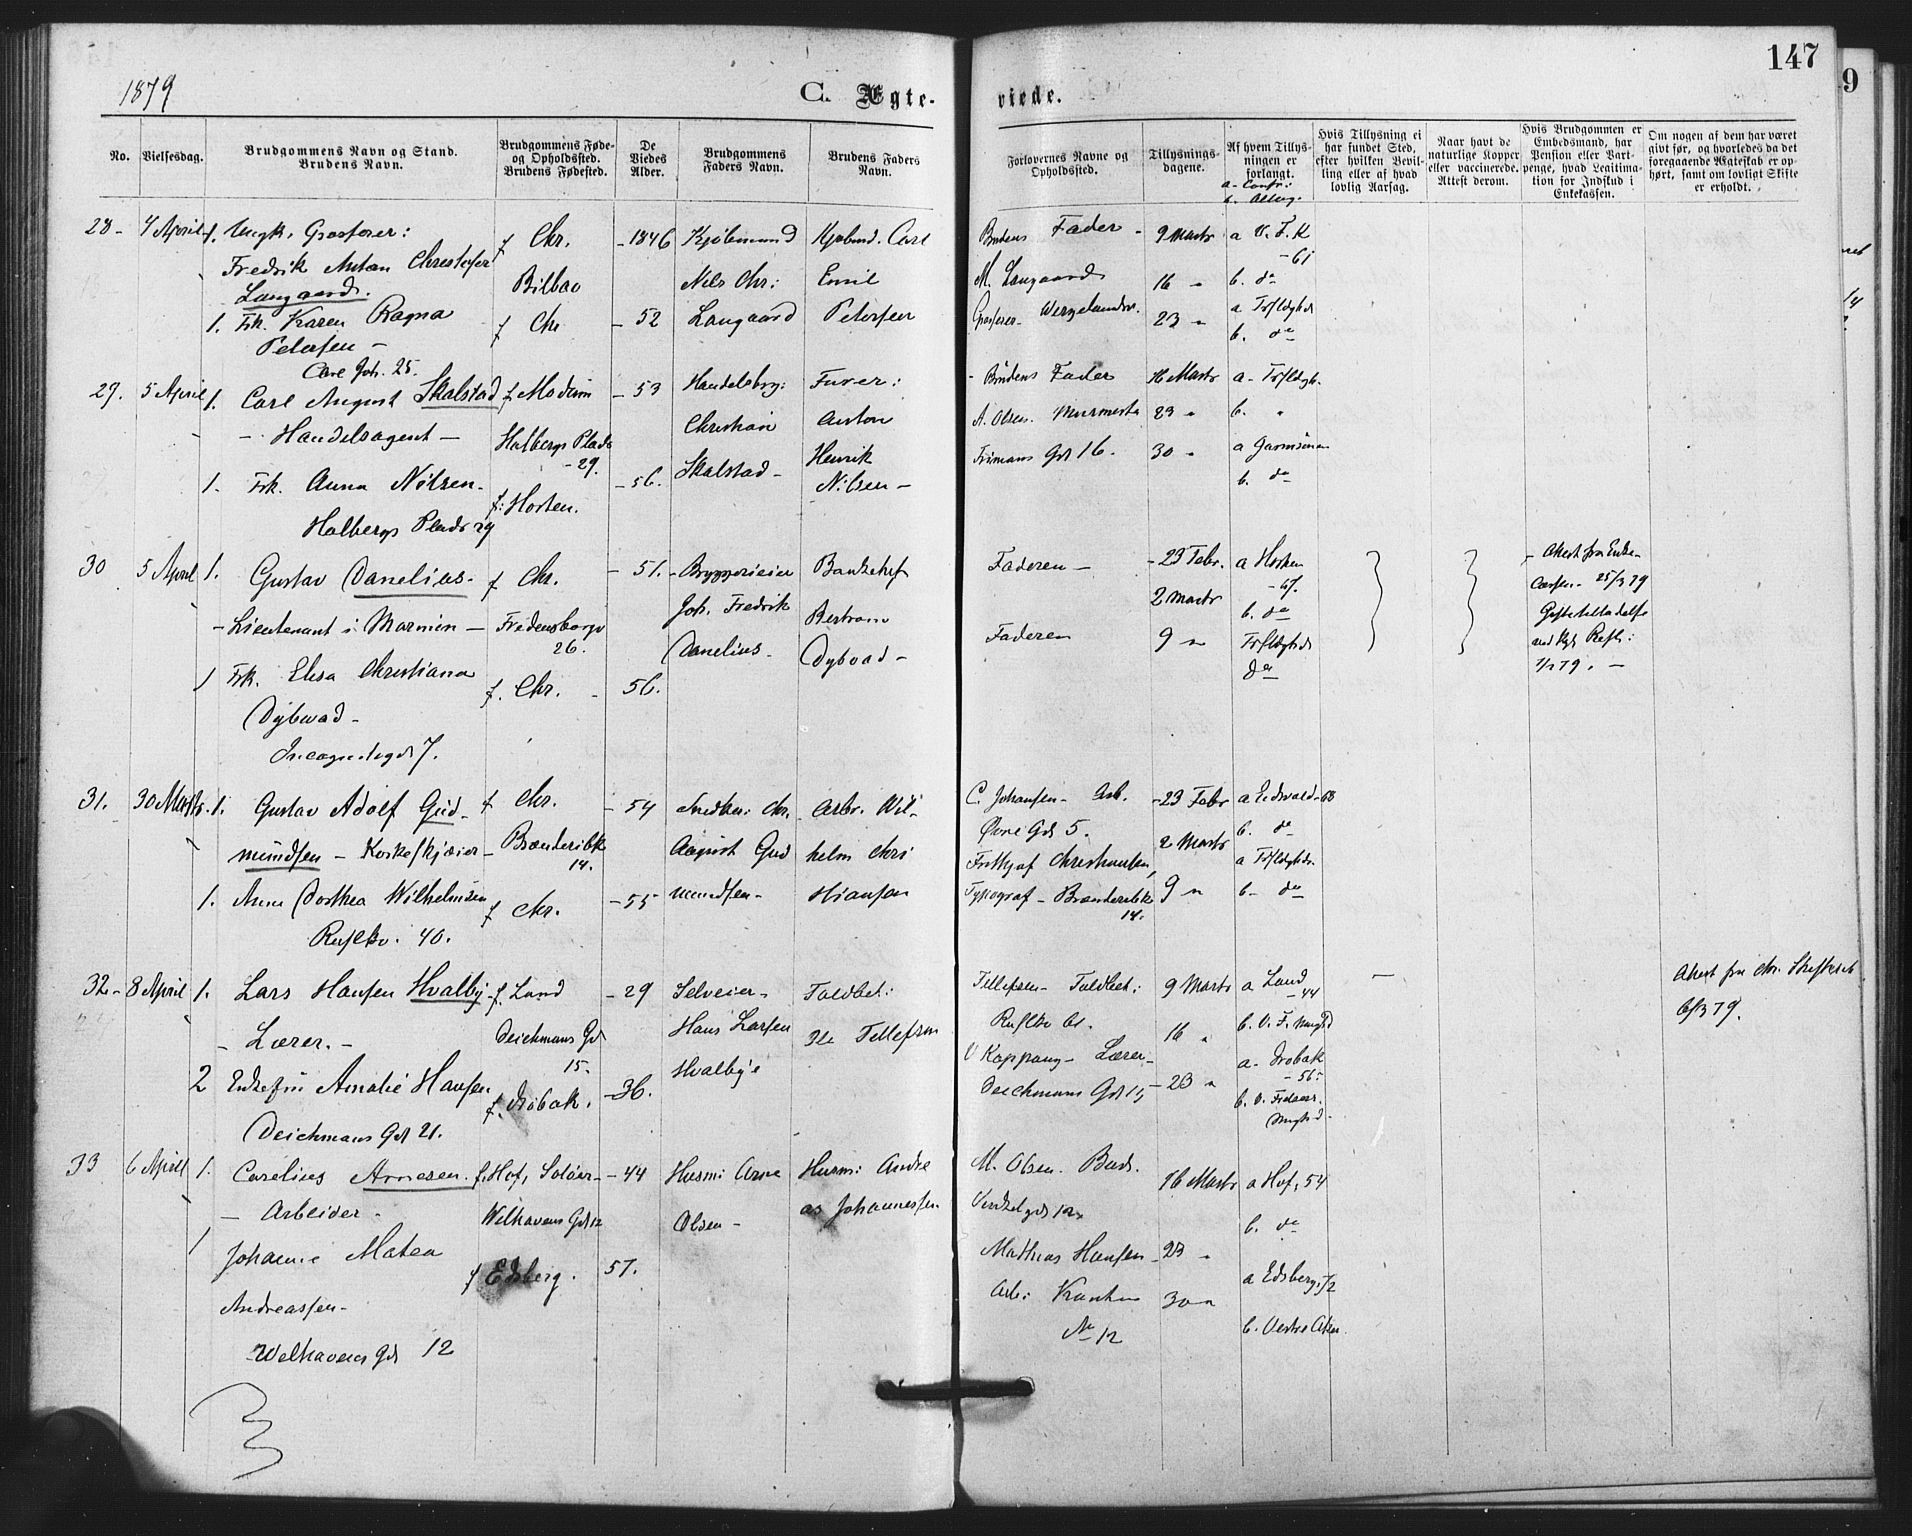 1879
C. Ægte-
viede.
147
9
No.
Vielsesdag.
Brudgommens Navn og Stand.
Brudens Navn.
Brudgommens Føde-
og Opholdssted.
Brudens Fødested.
De
Viedes
Alder.
Brudgommens
Faders Navn.
Brudens Faders
Navn.
Forlovernes Navne og
Opholdssted.
Tillysnings-
dagene.
Af hvem Tillys-
ningen er
forlangt.
a- Confr:
b.
Hvis Tillysning ei
har fundet Sted,
efter hvilken Bevil-
ling eller af hvad
lovlig Aarsag.
Naar havt de
naturlige Kopper
eller vaccinerede.
Attest derom.
Hvis Brudgommen er
Embedsmand, har
Pension eller Vart-
penge, hvad Legitima-
tion for Indskud i
Enkekassen.
Om nogen af dem har været
givt før, og hvorledes da det
foregaaende Ægteskab er op-
hørt, samt om lovligt Skifte
er erholdt.
28- 4 April 1. Ungk. Grosserer:
Fredrik Anton Christofer
Langaard.
1. Frk. Karen Ragna
Petersen -
Carl Joh. 25.
f Chr.
Bilbao
f Chr
- 1846
- 52
Kjøbmand
Nils Chr:
Langaard
Kjøbmd. Carl
Emil
Petersen
Brudens Fader -
M. Langaard
Grosserer Wergelandsv.
9 Marts
16 "
23 "
a V. F. K
- 61
b. da
a Trefoldighds
b. da
29. 5 April 1. Carl August Skalstad
- Handelsagent -
1. Frk. Anna Nilsen-
Holbergs Plads 29
f Modum
Holbergs Plads
- 29.
f: Horten.
- 53
- 56.
Handelsbrg:
Christian
Skalstad-
Furer:
Anton
Henrik
Nilsen-
- Brudens Fader
A. Olsen. Murmester
Frimans Gd 16.
16 Marts
23 "
30 "
a- Trefldgh.
b. "
a Garnisonen
b. da
30 5 April 1. Gustav Danelius-
- Lieutenant i Marinen -
1 Frk. Elisa Christiana
Dybwad-
Incognitogd 7.
f Chr.
Fredensborgv
26.
f. Chr. -
- 51.
56.
- Bryggerieier
Joh. Fredrik
Danelius-
Bankchef
Bertram
Dybvad-
Faderen -
Faderen
- 23 Febr.
2 Marts
9 "
a Horten
- 67.
b. da
Trefldighds
da
- Attest fra Enke-
Cassen- 25/3 79
Giftetilladelse
ved Kgl. Resl:
1/2 79. -
31. 30 Marts. 1. Gustav Adolf Gud-
mundsen - Korkeskjærer -
1. Anna Dorthea Wilhelmsen
Rusløkv. 40.
f Chr.
Brænderibk
14.
f Chr.
- 54
- 55
Snedker: Chr.
August Gud
mundsen-
Arbr. Wil-
helm Chri
stiansen
C. Johansen- Arb.
Øvre Gd 5.
Frithjof Christiansen,
Typograf - Brænderibk
14.
- 23 Febr
2 Marts
9 "
a Eidsvold - 68
b. da
a Trefldighds.
b- da
32- 8 April 1. Lars Hansen Hvalby
- Lærer. -
2 Enkefru Amalie Hansen
Deichmans Gd 21.
f. Land
Deichmans Gd
15-
f. Drøbak.
- 29
- 36.
Selveier-
Hans Larsen
Hvalbye
Toldbet:
Ole Tellefsen
Tellefsen- Toldbet:
Rusløkv 61.
Koppang- Lærer-
Deichmans Gd 15
9 Marts
16 "
- 23 "
a Land
- 44
b. V. F. Mnghd
a- Drøbak
- 56-
b. V. Frelsers.
Mnghd-
-
Attest fra Chr. Skifteret
6/3 79.
33 6 April 1. Carelius Arnesen.
- Arbeider -
1
Johanne Matea
Andreassen-
Welhavens Gd 12
f. Hof, Soløer-
Welhavens Gd 12
f Edsberg.
- 44
57.
Husm: Arne
Olsen-
Husm: Andre
as Johannessen
M. Olsen. Bud.
16 Marts
a Hof, 54
b. da
Mathias Hansen-
Arb:
No 12
23 "
30 "
a Edsberg, 72
b. Vestre Aker.